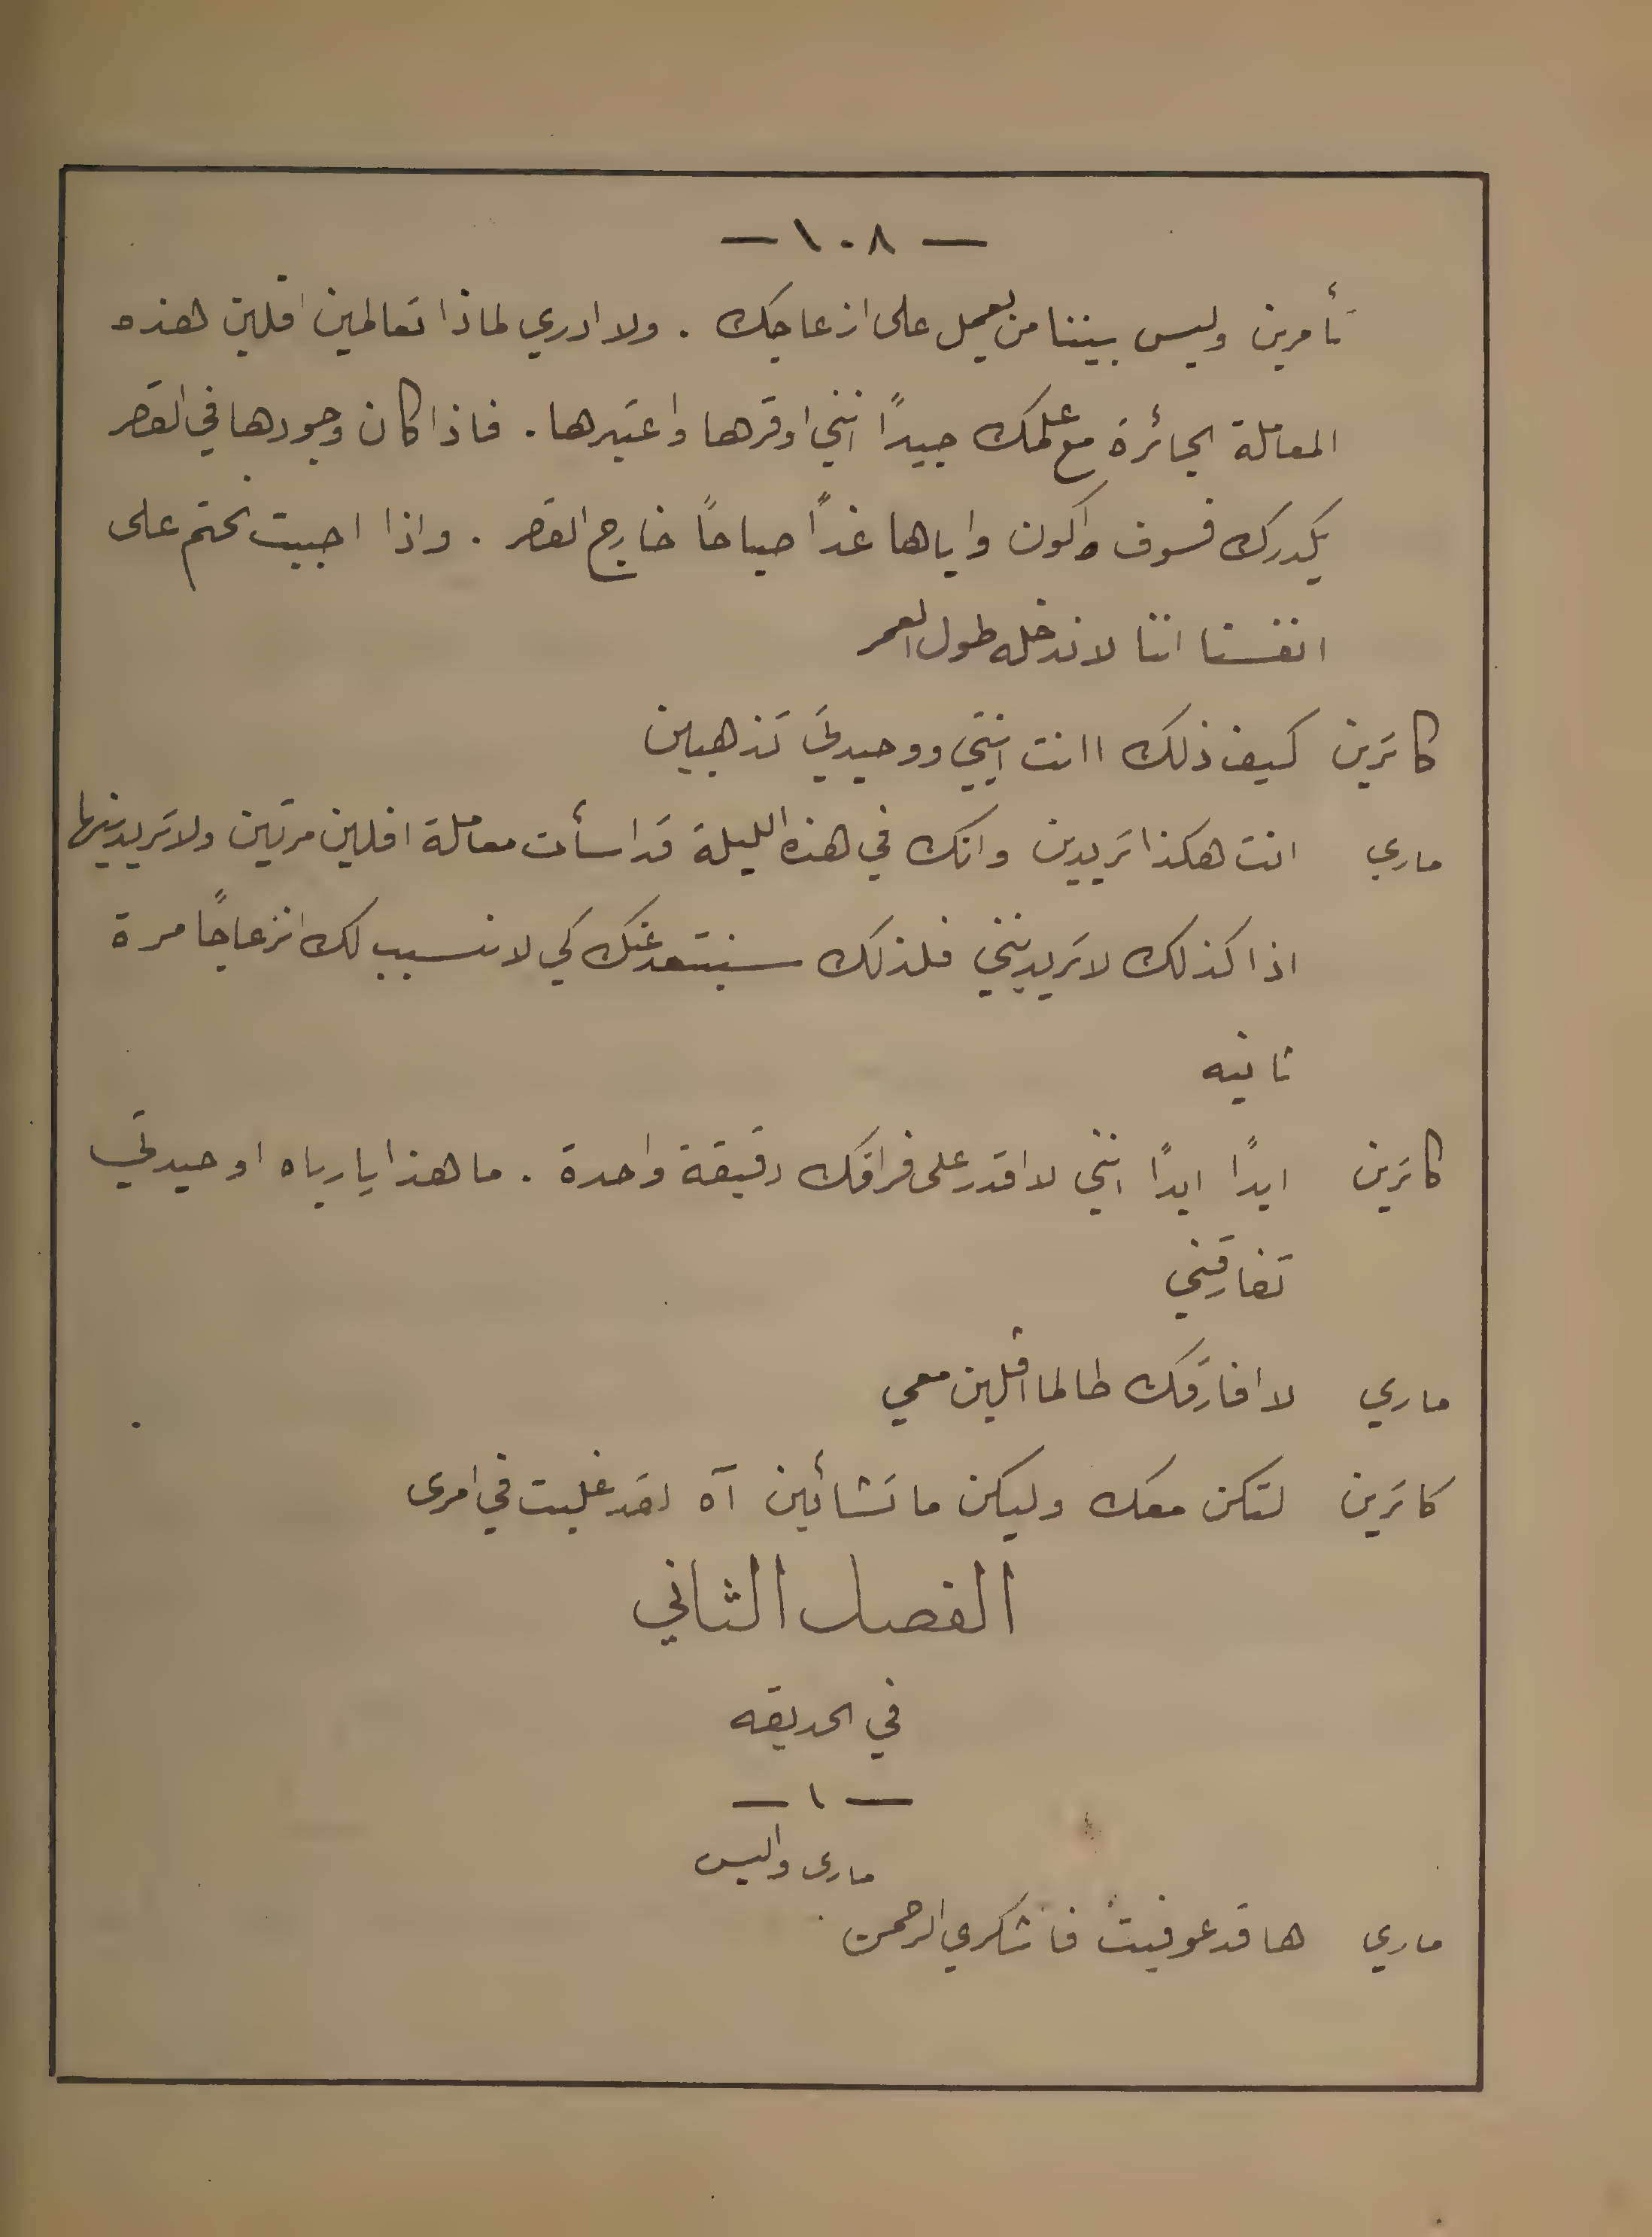 — ١٠٨ —
تأمرين وليس بيننا من يعمل على ازعاجك . ولا ادري لماذا تعاملين افلين هذه
المعاملة الجائرة مع علمك جيداً انني اوقرها واعتبرها . فاذا كان وجودها في القصر
يكدرك فسوف اكون واياها غداً صباحاً خارج القصر . واذا احببت نحتم على
انفسنا اننا لا ندخله طول العمر
كاترين كيف ذلك اانت ابنتي ووحيدتي تذهبين
ماري انت هكذا تريدين وانك في هذه الليلة قد اسأت معاملة افلين مرتين ولا تريدينها
اذا كذلك لا تريدينني فلذلك سنبتعد عنك كي لا نسبب لك انزعاجاً مرة
ثانيه
كاترين ابداً ابداً انني لا اقدر على فراقك دقيقة واحدة . ما هذا يا رباه او حيدتي
تفارقني
ماري لا افارقك طالما افلين معي
كاترين لتكن معك وليكن ما تشائين آه لقد غلبت في امرى
الفصل الثاني
في الحديقه
— ١ —
مارى واليس
ماري ها قد عوفيت فاشكري الرحمن